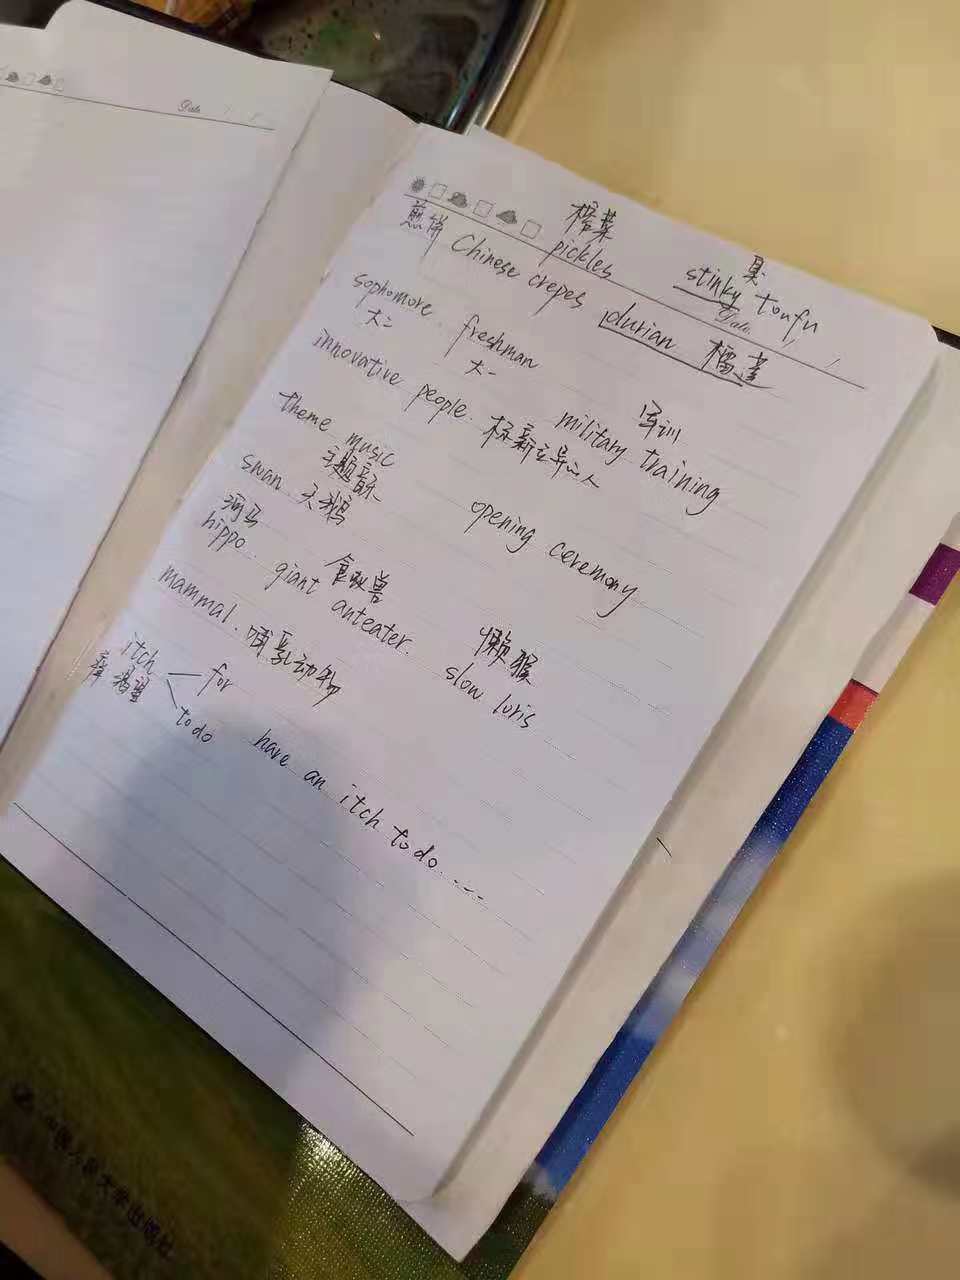 Date
榨菜
臭
煎饼 Chinese crepes pickles stinky toufu
Date.
sophomore. freshman durian 榴莲
大二 大一
innovative people. 标新立异之人 military training 军训
theme music
主题音乐
swan 天鹅 opening ceremony
河马 食蚁兽
hippo. giant anteater. 懒猴
mammal. 哺乳动物 slow loris
itch for
痒 渴望 to do have an itch to do.....
中国人民大学出版社